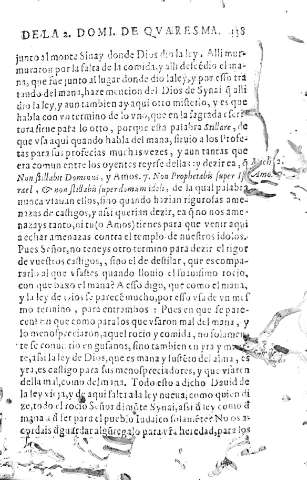 DE LA 2. DOMI. DE QVARESMA. 138
junto al monte Sinay donde Dios dio la ley, Alli mur-
muraron por la falta de la comida, y alli descēdio el ma-
na, que fue junto al lugar donde dio la ley, y por esso tra
tando del mana, haze mencion del Dios de Synai q̃ alli
dio la ley, y aun tambien ay aqui otro misterio, y es que
habla con vn termino de lo vno, que en la sagrada escri-
tura sirue para lo otro, porque esta palabra Stillare, de
que vsa aqui quando habla del mana, siruio a los Prophe
tas para sus profecias muchas vezes, y aun tantas que
era comun entre los oyentes reyrse dellas y dezir ea, q̃
Non stillabit Dominus, y Amos. 7. Non Prophetabis super Is
rael, & non stillabis super domum idoli, de la qual palabra
Mich. 2.
Amos.
nunca vsauan ellos, sino quando hazian rigurosas ame-
nazas de castigos, y assi querian dezir, ea q̃ no nos ame-
nazays tanto, ni tu (o Amos) tienes para que venir aqui
a echar amenazas contra el templo de nuestros idolos.
Pues Señor, no teneys otro termino para dezir el rigor
de vuestros castigos, sino el de destilar, que es compa-
rarlo al que vsastes quando llouio el suauissimo rocio,
con que baxo el mana? A esso digo, que como el mana,
y la ley de Dios se parecē mucho, por esso vsa de vn mes
mo termino, para entrambos: Pues en que se pare-
cen? en que como para los que vsaron mal del mana, y
lo menospreciaron, aquel rocio y comida, no solamen-
te se conuirtio en gusanos, sino tambien en yra y muer
te, assi la ley de Dios, que es mana y sustēto del alma, es
yra, es castigo para sus menospreciadores, y que vsaren
della mal, como del mana. Todo esto a dicho Dauid de
la ley vieja, y de aqui salta a la ley nueua, como quien di
ze, todo el rocio Señor di mōte Synai, assi d̃ ley como d̃
mana a d̃ ser para el pueblo Iudaico solamēte? No os a-
cordais d̃ guardar algũ regalo para vr̃a heredad, para los